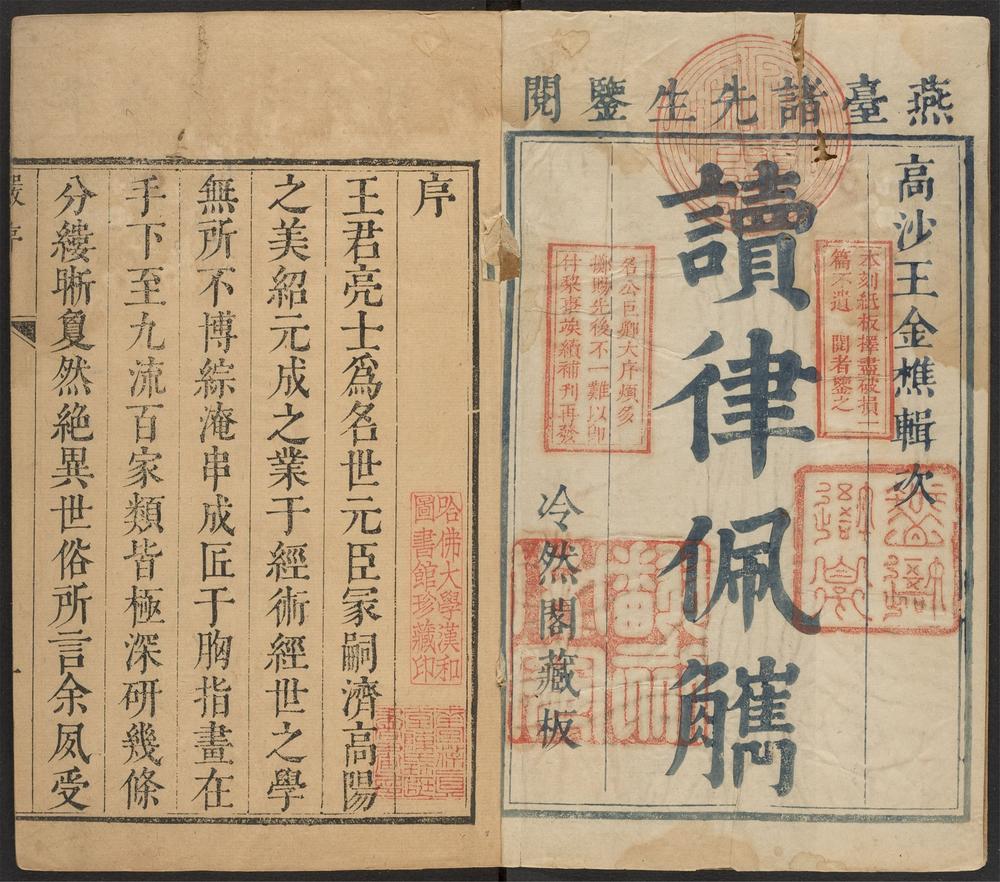 燕臺諸先生鑒閱
高沙王金樵輯次
本刻紙板擇盡破損一
篇不遺　閱者鑒之
讀律佩觿
名公巨卿大序頗多
擲賜先後不一難以卽
付棃棗竢續補刊再發
冷然閣藏板
序
王君亮士爲名世元臣冡嗣濟高陽
之美紹元成之業于經術經世之學
無所不博綜淹串成匠于胸指畫在
手下至九流百家類皆極深研幾條
分縷晰敻然絶異世俗所言余夙受
哈佛大學漢和
圖書館珍藏印